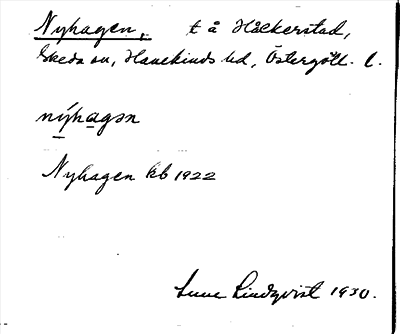 Nyhagen, t å Håckerstad,
Skeda sn, Hanekinds hd, Östergötl. l.
nýhagən
Nyhagen kb 1922
Sune Lindqvist 1930.